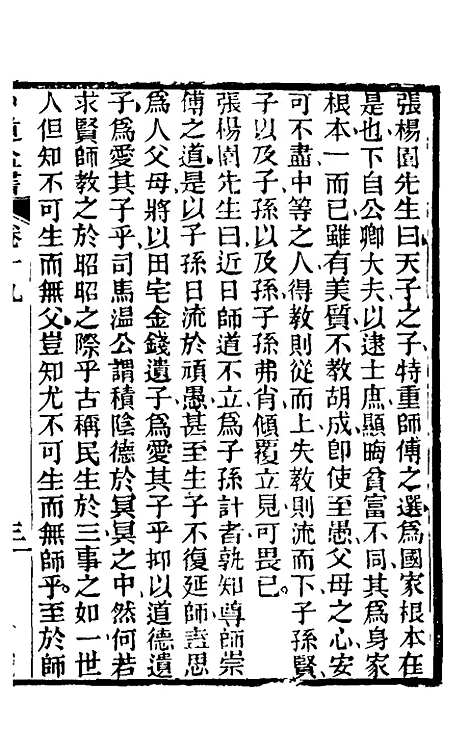 張楊園先生曰天子之子特重師傅之選爲國家根本在
是也下自公卿大夫以逮士庶顯晦貧富不同其爲身家
根本一而已雖有美質不教胡成卽使至愚父母之心安
可不盡中等之人得教則從而上失教則流而下子孫賢
子以及子孫以及孫子孫弗肖傾覆立見可畏已
張楊園先生曰近日師道不立爲子孫計者孰知尊師崇
傅之道是以子孫日流於頑愚甚至生子不復延師盍思
爲人父母將以田宅金錢遺子爲愛其子乎抑以道德遺
子爲愛其子乎司馬温公謂積陰德於冥冥之中然何若
求賢師教之於昭昭之際乎古稱民生於三事之如一世
人但知不可生而無父豈知尤不可生而無師乎至於師
卷十九
三